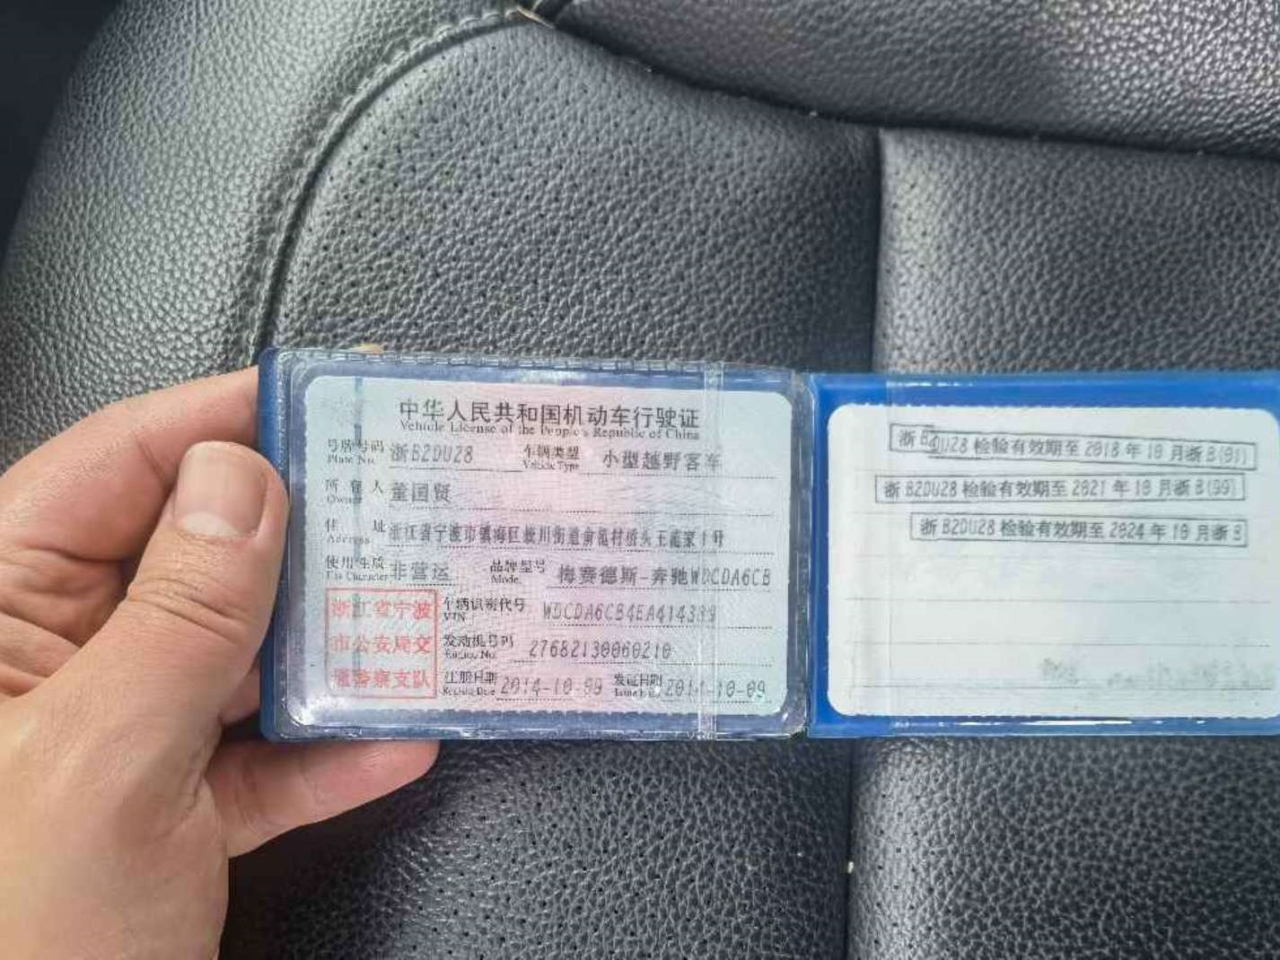 中华人民共和国机动车行驶证
Vehicle License of the People's Republic of China
号牌号码 浙B2DU28 车辆类型 小型越野客车
Plate No. Vehicle Type
所有人 董国贤
Owner
住址 浙江省宁波市镇海区 街道 村 头王 1号
Address
使用性质 非营运 品牌型号 梅赛德斯-奔驰WDCDA6CB
Use Character Model
浙江省宁波市公安局交通警察支队
车辆识别代号 WDCDA6CB4EA414339
VIN
发动机号码 27682130060210
Engine No.
注册日期 2014-10-09 发证日期 2014-10-09
Register Date Issue Date
浙B2DU28 检验有效期至 2018 年 10 月浙B(01)
浙 B2DU28 检验有效期至 2021 年 10 月浙 B(99)
浙 B2DU28 检验有效期至 2024 年 10 月浙B